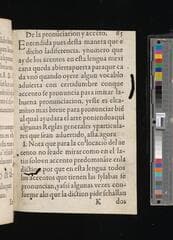 De la pronũciacion y accẽto. 65
Entendida pues desta manera que e
dicho la diferencia, y numero que
ay de los accentos en esta lengua mexi
queda abierta puerta para que ca
da vno quando oyere algun vocablo
aduierta con certidumbre con que
accento se pronuncia para imitar la
buena pronunciacion, y este es el ca
mino mas breue para pronunciar biẽ
el qual ayudara el arte poniendo aqui
algunas Reglas generales y particula-
res que seran aduertido, assi agora
1. Nota que para la colocacio del ac
cento no se ade mirar como en el la
tin solo vn accento predominãte en la
dicho por que en esta lengua todos
los accentos que tienen las sylabas se
pronuncian, y assi algunas vezes con
que la dictiõ pide señalan
K dos